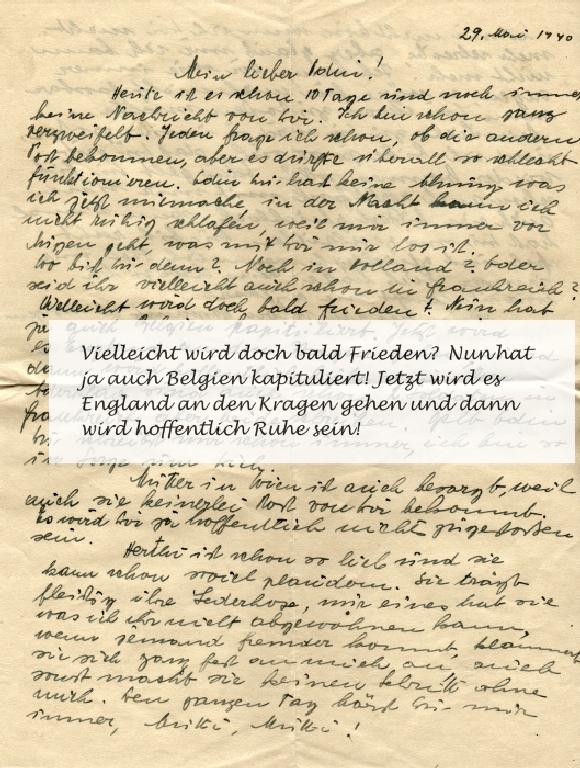 29. Mai 1940
Mein lieber Odin!
Heute ist es schon 10 Tage und noch immer
keine Nachricht von Dir. Ich bin schon ganz
verzweifelt. Jeden frage ich schon, ob die andern
Post bekommen, aber es dürfte überall so schlecht
funktionieren. Odin Du hast keine Ahnung was
ich jetzt mitmache, in der Nacht kann ich
nicht ruhig schlafen, weil mir immer vor
Augen geht, was mit Dir mir los ist.
Wo bist Du denn? Noch in Holland? oder
seid ihr vielleicht auch schon in Frankreich?
Vielleicht wird doch bald Frieden? Nun hat
Vielleicht wird doch bald Frieden? Nun hat
ja auch Belgien kapituliert! Jetzt wird es
England an den Kragen gehen und dann
wird hoffentlich Ruhe sein!
in Sorge um Dich.
Mutter in Wien ist auch besorgt, weil
auch sie keinerlei Post von Dir bekommt.
Es wird Dir ja hoffentlich nicht zugestossen
sein.
Herthi ist schon so lieb und sie
kann schon soviel plaudern. Sie trägt
fleißig ihre Lederhose, nur eines hat sie
was ich ihr nicht abgewöhnen kann,
wenn jemand fremder kommt, klammert
sie sich ganz fest an mich an, auch
sonst macht sie keinen Schritt ohne
mich. Den ganzen Tag hörst Du nur
immer, Mutti, Mutti!